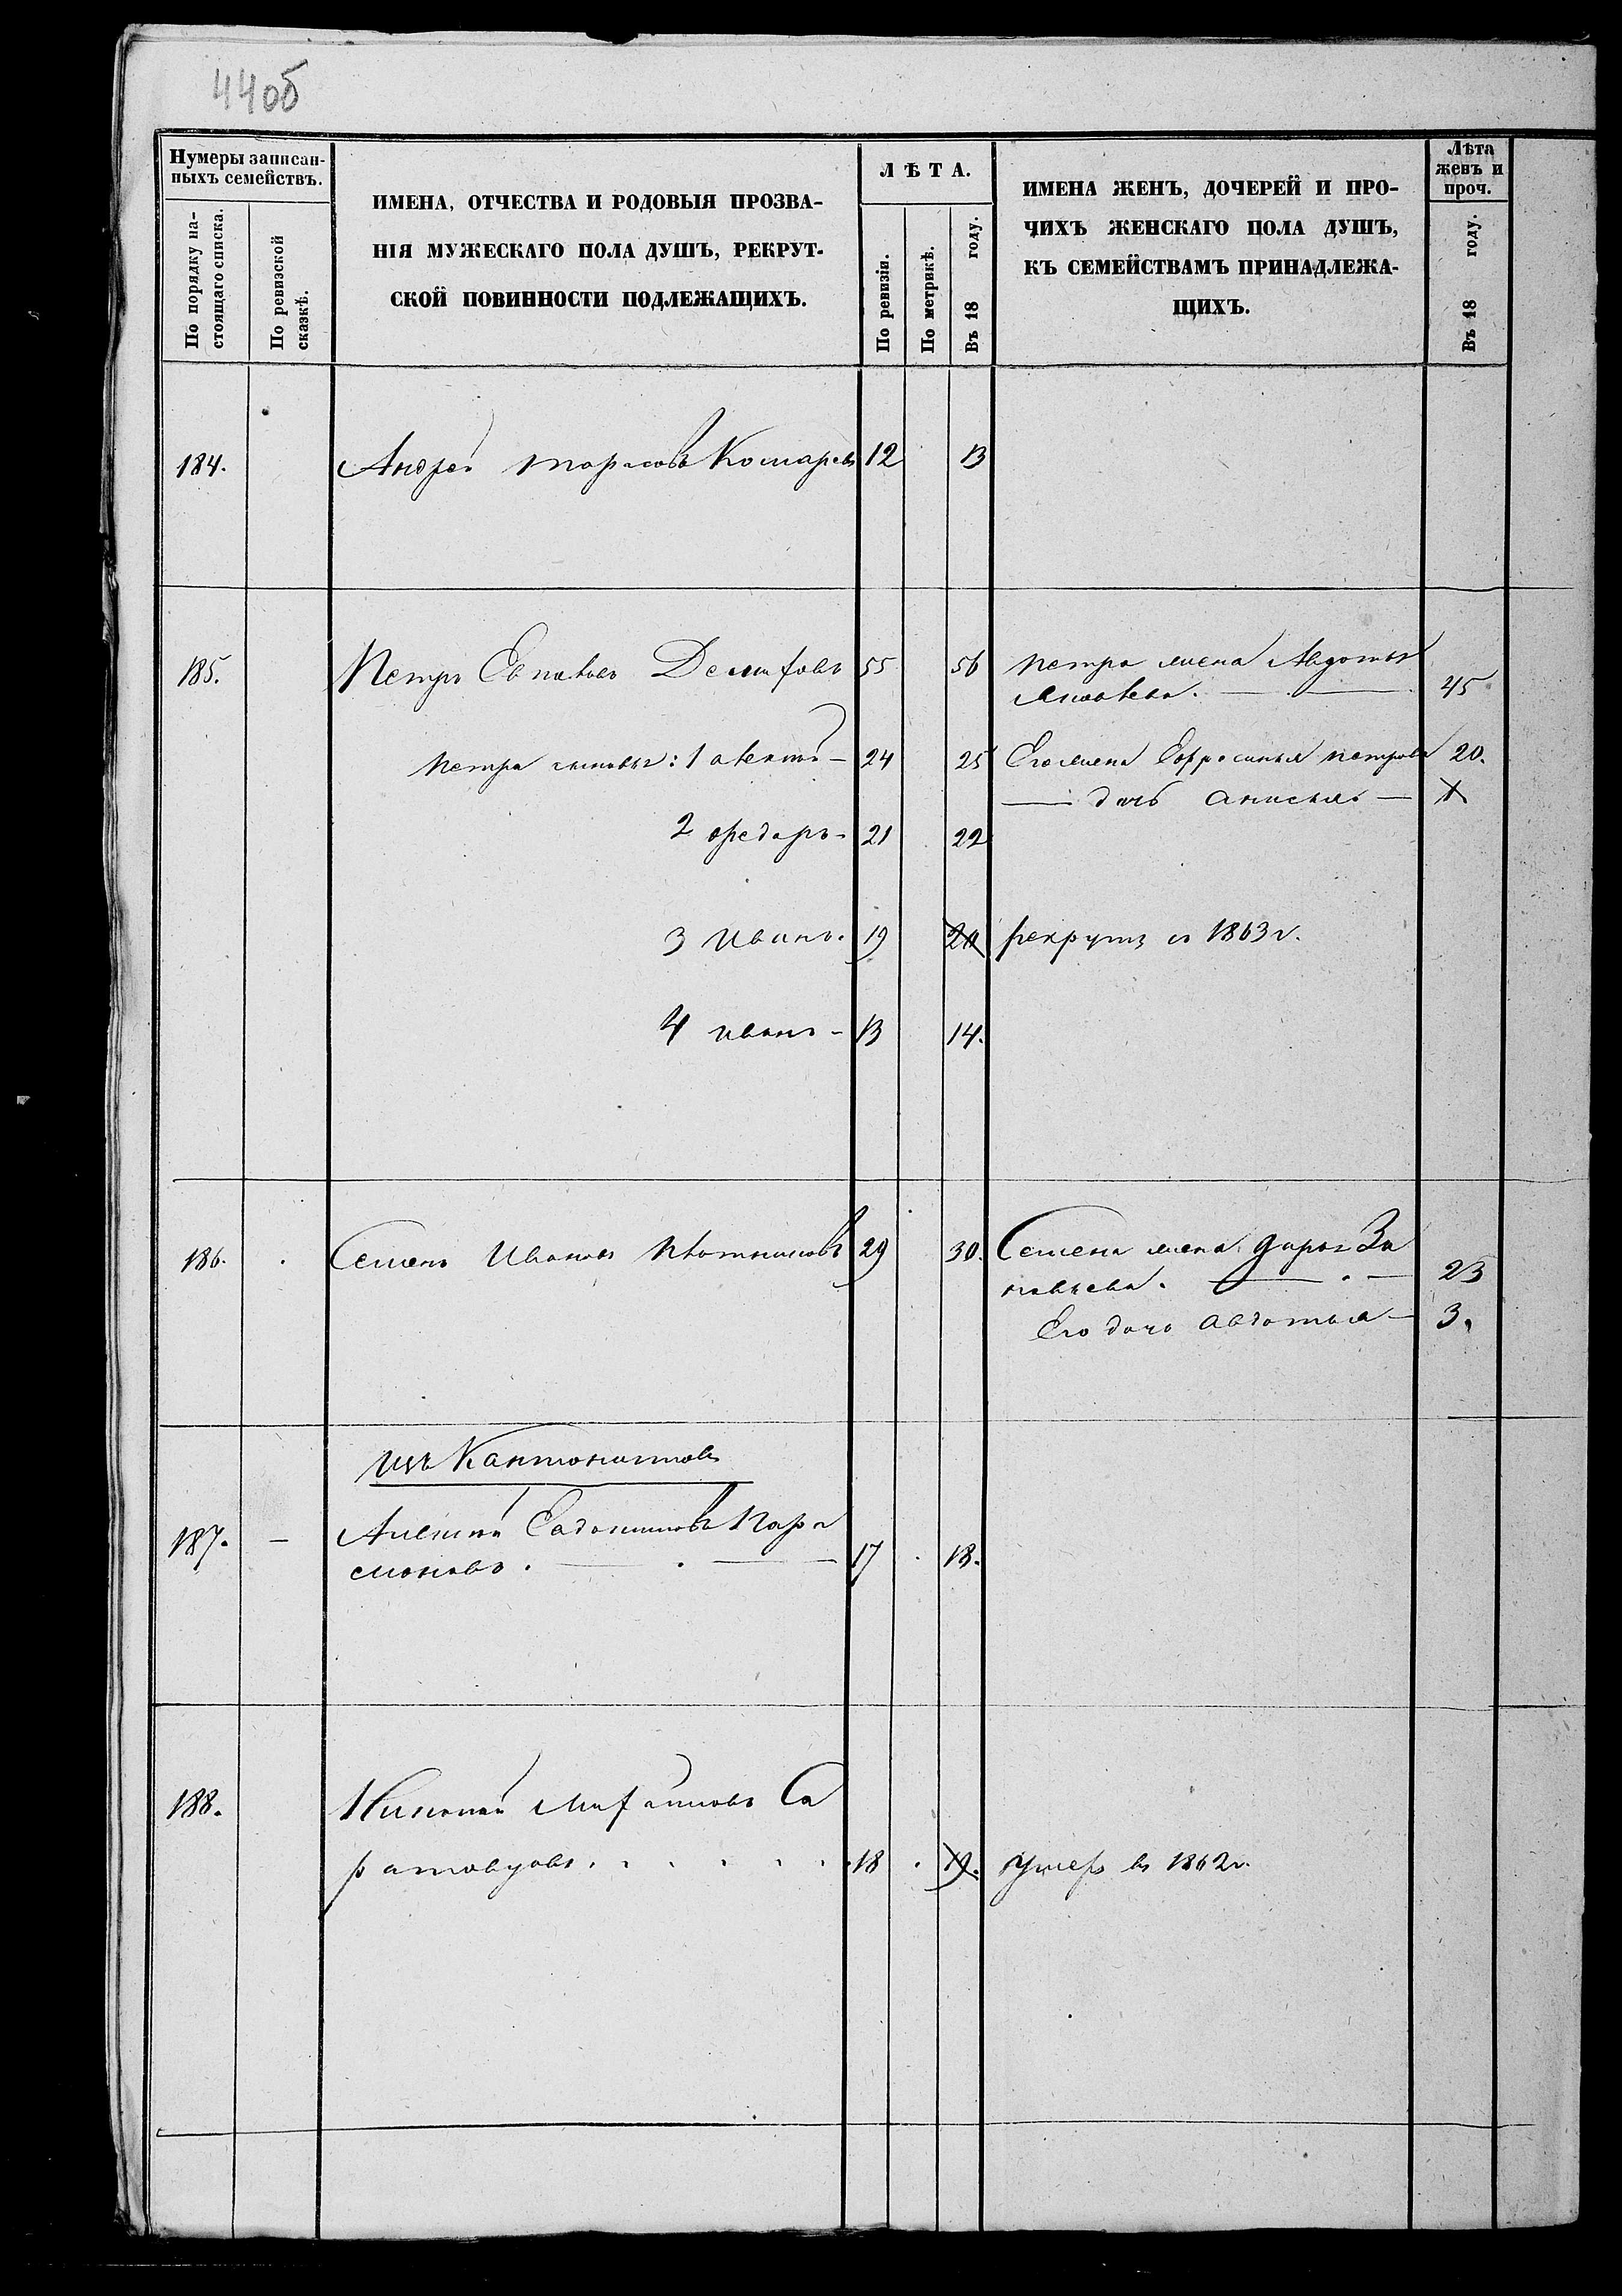 44об
Нумеры записан-
ныхъ семействъ.
По порядку на-
стоящаго списка.
По ревизской
сказкѣ.
ИМЕНА, ОТЧЕСТВА И РОДОВЫЯ ПРОЗВА-
НІЯ МУЖЕСКАГО ПОЛА ДУШЪ, РЕКРУТ-
СКОЙ ПОВИННОСТИ ПОДЛЕЖАЩИХЪ.
ЛѢТА.
По ревизіи.
По метрикѣ.
Въ 18 году.
ИМЕНА ЖЕНЪ, ДОЧЕРЕЙ И ПРО-
ЧИХЪ ЖЕНСКАГО ПОЛА ДУШЪ,
КЪ СЕМЕЙСТВАМЪ ПРИНАДЛЕЖА-
ЩИХЪ.
Лѣта
женъ и
проч.
Въ 18 году.
184. Андрей Тарасовъ Комаревъ 12 13
185. Петръ 55 56 Петра жена Авдотья
Яковлева. 45
Петра сыновья: 1 24 25 Его жена Ефросинья Петрова 20.
дочь Анисья
2 Федоръ 21 22
3 Иванъ. 19 20 рекрутъ съ 1863 г.
4 Иванъ 13 14.
186. Семенъ Ивановъ Плотниковъ 29 30. Семена жена Дарья Зи
новьева. 23
Его дочь Авдотья 3.
Изъ Кантонистовъ
187. Алексѣй Евдокимовъ Пара
моновъ. 17 18.
188. Николай Михайловъ Са
ратовцовъ. 18 19. Умеръ въ 1862 г.